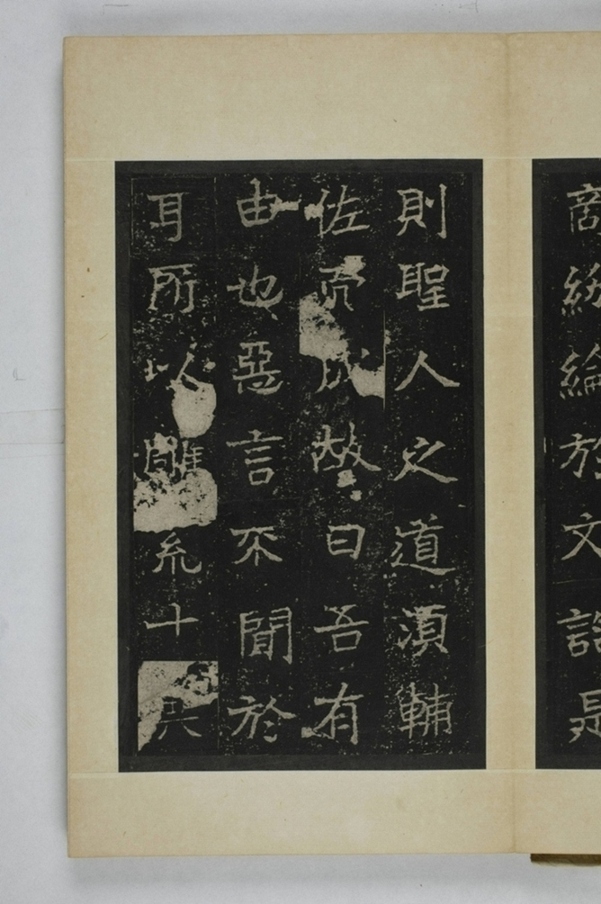 紛綸於文誥是
則聖人之道須輔
佐而成故曰吾有
由也惡言不聞於
耳所以雕十